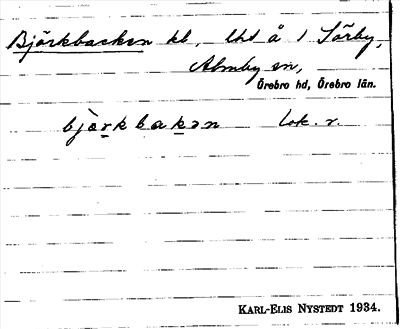 Björkbacken kl, lhd å 1 Törby,
Almby sn,
Örebro hd, Örebro län.
bjœrkbakən lok. r.
KARL-ELIS NYSTEDT 1934.